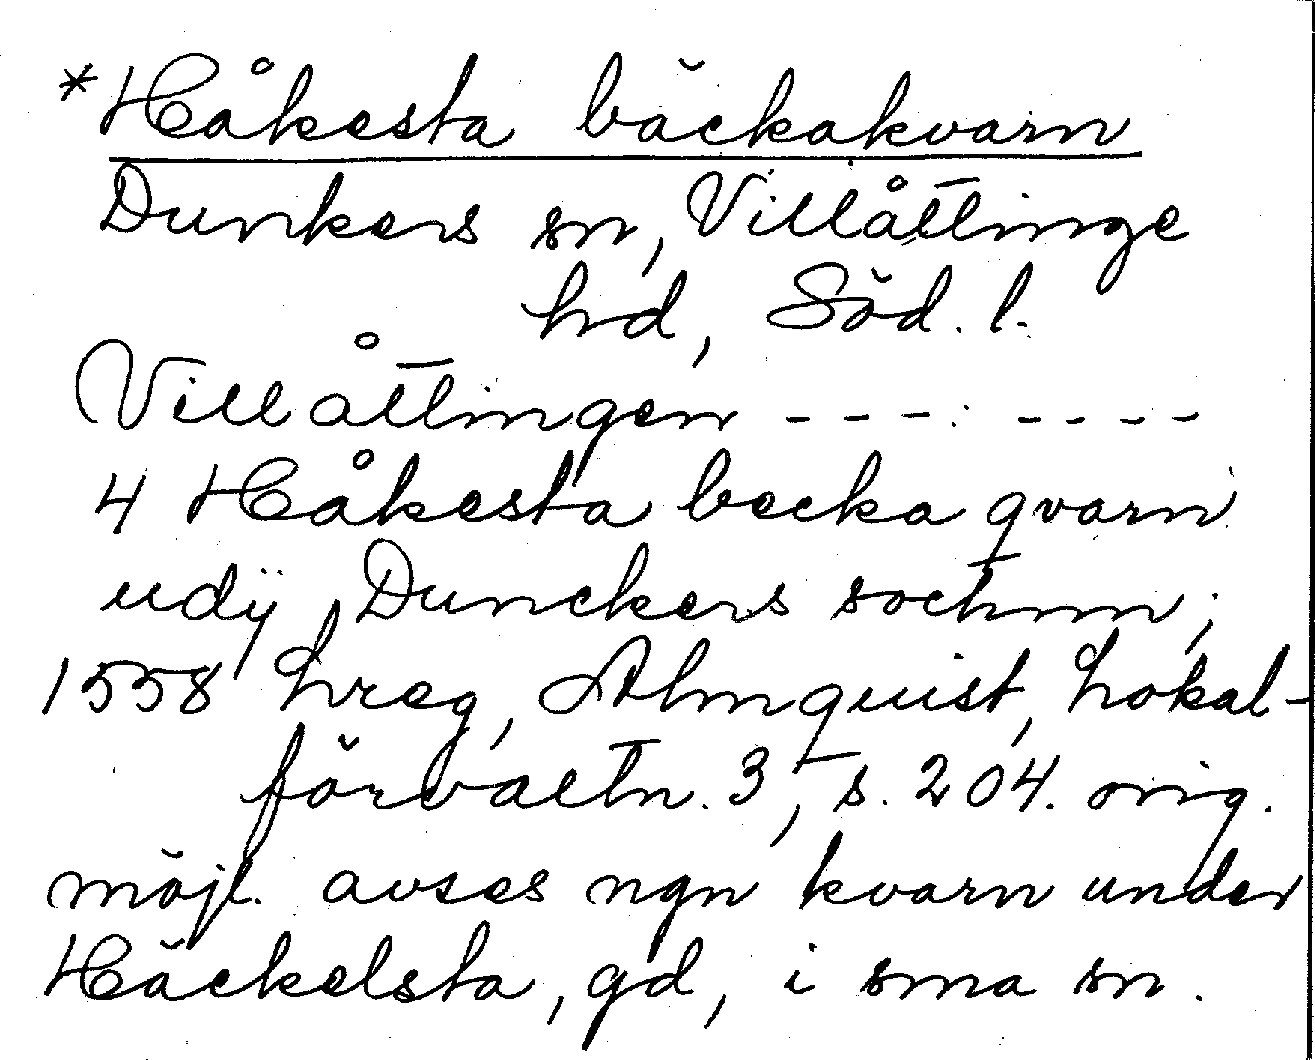 *Håkesta bäckakvarn
Dunkers sn, Villåttinge
hd, Söd. l.
Villåttingen - - - : - - - -
4 Håkesta becka qvarn
udÿ Dunckers sochnn;
1558 hreg, Almquist, Lokal-
förvaltn. 3, s. 204. orig.
möjl. avses ngn kvarn under
Häckelsta, gd, i sma sn.